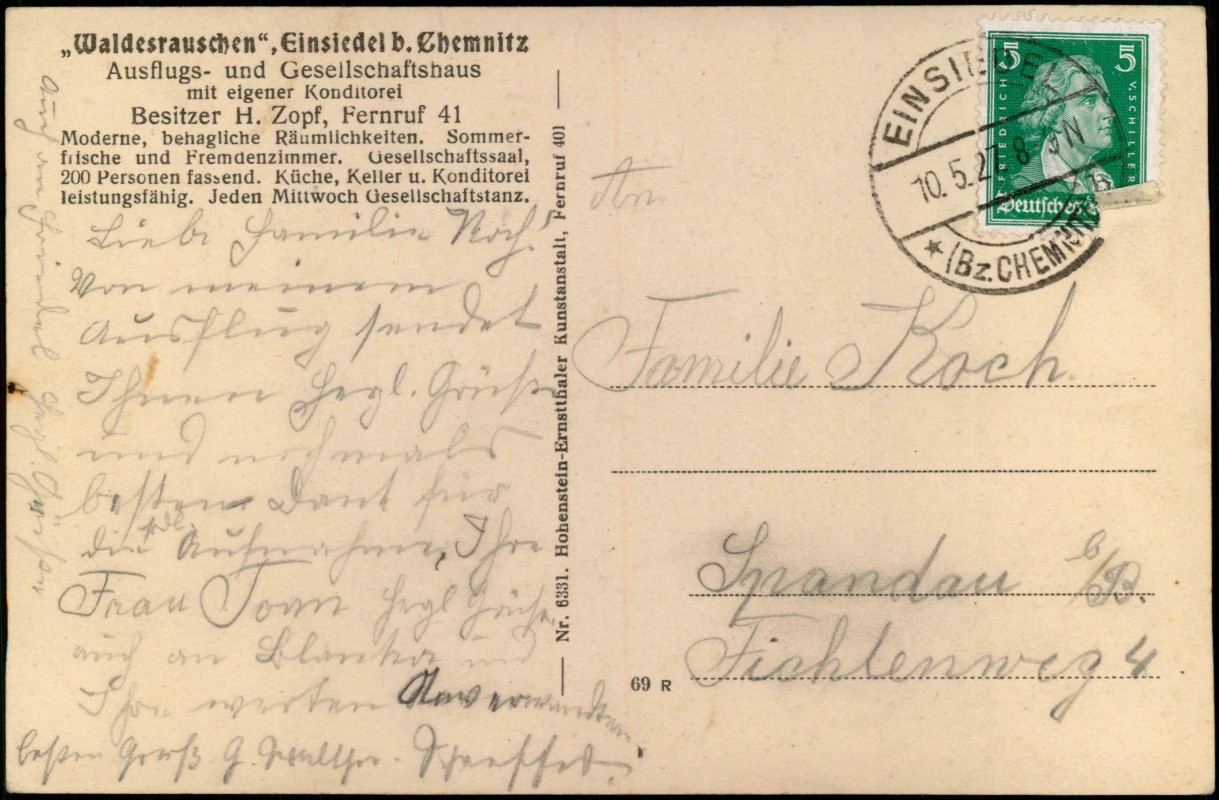 „Waldesrauschen“, Einsiedel b. Chemnitz
Ausflugs- und Gesellschaftshaus
mit eigener Konditorei
Besitzer H. Zopf, Fernruf 41
Moderne, behagliche Räumlichkeiten. Sommer-
frische und Fremdenzimmer. Gesellschaftssaal,
200 Personen fassend. Küche, Keller u. Konditorei
leistungsfähig. Jeden Mittwoch Gesellschaftstanz.
Liebe Familie Koch!
Von meinem
Ausflug sendet
Ihnen herzl. Grüße
und nochmals
besten Dank für
die Aufnahme, Ihre
Frau herzl. Grüße
auch an Blanka und
Ihre werten Anverwandten
besten Gruß G.
Nr. 6331. Hohenstein-Ernstthaler Kunstanstalt, Fernruf 401
69 R
5 5
FRIEDRICH V. SCHILLER
Deutsches
EINSIEDEL
10.5.27. 8-9 N
★ (Bz. CHEMNITZ) B
An
Familie Koch.
Spandau b/B.
Fichtenweg 4